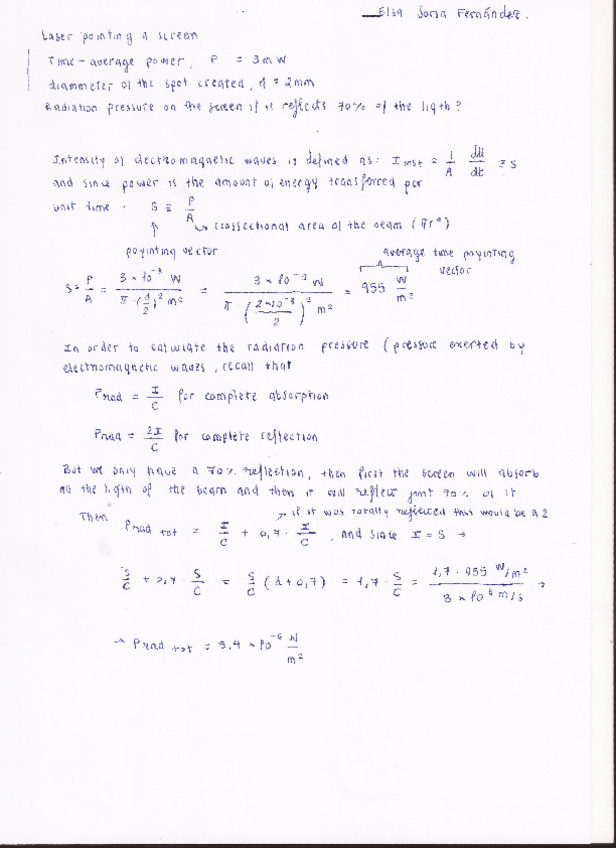 Elsa Soria Fernández.
Laser pointing a screen
Time-average power, P = 3mW
diammeter of the spot created, d = 2mm
Radiation pressure on the screen if it reflects 70% of the ligth?
Intensity of electromagnetic waves is defined as: I inst = 1/A dU/dt ≡ S
and since power is the amount of energy transferred per
unit time. S ≡ P/A
↳ crossectional area of the beam (πr²)
poyinting vector
average time poyinting vector
S = P/A = 3×10⁻³ W / π·(d/2)² m² = 3×10⁻³ W / π·(2×10⁻³/2)² m² = 955 W/m²
In order to calculate the radiation pressure (pressure exerted by
electromagnetic waves, recall that
Prad = I/C for complete absorption
Prad = 2I/C for complete reflection
But we only have a 70% reflection, then first the screen will absorb
all the ligth of the beam and then it will reflect just 70% of it
→ if it was totally reflected this would be a 2
Then Prad tot = I/C + 0,7 · I/C, and since I = S →
S/C + 0,7 · S/C = S/C (1+0,7) = 1,7 · S/C = 1,7 · 955 W/m² / 3×10⁸ m/s →
→ Prad tot = 5,4 × 10⁻⁶ N/m²